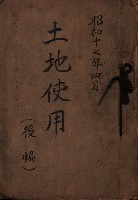 昭和十七年四月
土地使用
(後編)